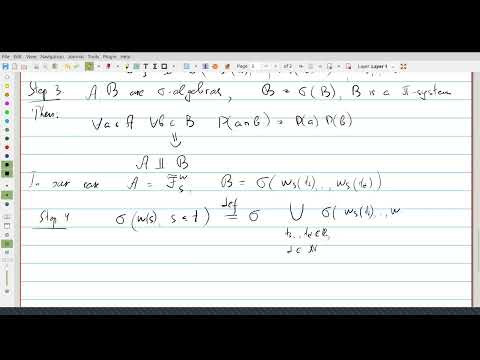 File Edit View Navigation Journal Tools Plugin Help
Layer Layer 1
Step 3. A, B are σ-algebras, B = σ(B), B is a π-system
Then:
∀a∈A ∀b∈B P(a∩b) = P(a) P(b)
⇓
A ⫫ B
In our case A = F̃ₛʷ, B = σ(wₛ(t₁), .., wₛ(t_d))
Step 4 σ(w(s), s≤t) def= σ ⋃ σ(wₛ(t₁), .., w
t₁, .., t_d∈ℝ,
d∈ℕ